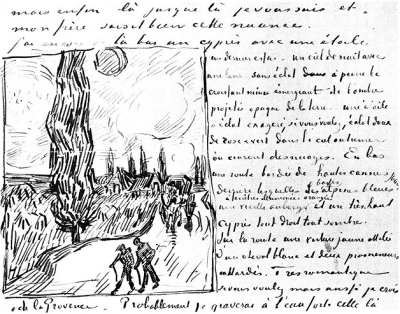 mais enfin là jusque là je vous suis et
mon frère saisit bien cette nuance.
J'ai encore de là bas un cyprès avec une étoile
un dernier essai – un ciel de nuit avec
une lune sans éclat à peine le
croissant mince émergeant de l'ombre
projetée opaque de la terre – une étoile
à éclat exagéré si vous voulez, éclat doux
de rose & vert dans le ciel outremer
où courent des nuages. En bas
une route bordée de hautes cannes
derrière lesquelles les basses alpines bleues
une vieille auberge à fenêtres illuminées orangé et un très haut
cyprès tout droit tout sombre.
Sur la route une voiture jaune attelée
d'un cheval blanc et deux promeneurs
attardés. Très romantique
si vous voulez mais aussi je crois
de la Provence. Probablement je graverai à l'eau forte celle là